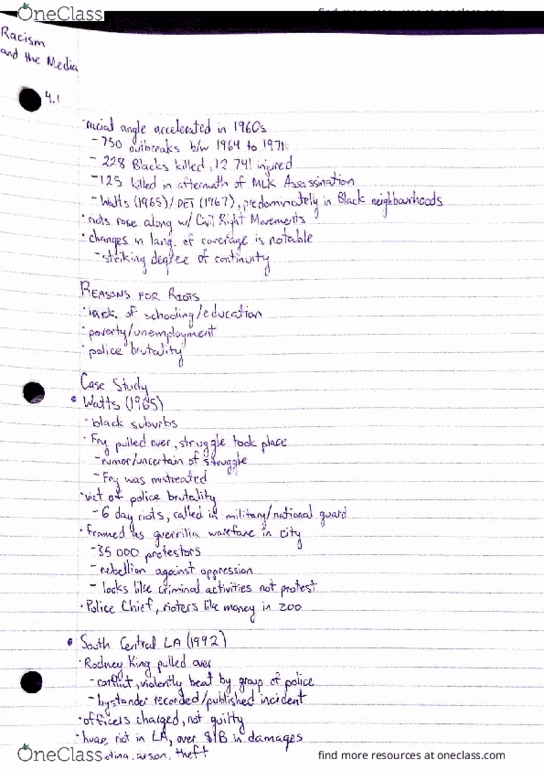 OneClass
find more resources at oneclass.com
Racism
and the Media
4.1
·racial angle accelerated in 1960s
-750 outbreaks b/w 1964 to 1971
-228 Blacks killed, 12 741 injured
-125 killed in aftermath of MLK Assassination
-Watts (1965)/DET (1967), predominately in Black neighbourhoods
·riots rose along w/ Civil Right Movements
·changes in lang. of coverage is notable
-striking degree of continuity
REASONS FOR RIOTS
·lack of schooling/education
·poverty/unemployment
·police brutality
Case Study
• Watts (1965)
·black suburbs
·Fry pulled over, struggle took place
-rumor/uncertain of struggle
-Fry was mistreated
·vict of police brutality
-6 day riots, called in military/national guard
·Framed as guerrilla warfare in city
-35 000 protestors
-rebellion against oppression
-looks like criminal activities not protest
·Police Chief, rioters like money in zoo
• South Central LA (1992)
·Rodney King pulled over
-conflict, violently beat by group of police
-bystander recorded/published incident
·officers charged, not guilty
·huge riot in LA, over $1B in damages
arson, theft
OneClass
find more resources at oneclass.com